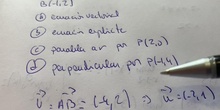 B(-1,2)
a) ecuación vectorial
b) ecuación explícita
c) paralela a r por P(2,0)
d) perpendicular por P(-1,4)
V = AB = (-4,2) ⇒ u = (-2,1)